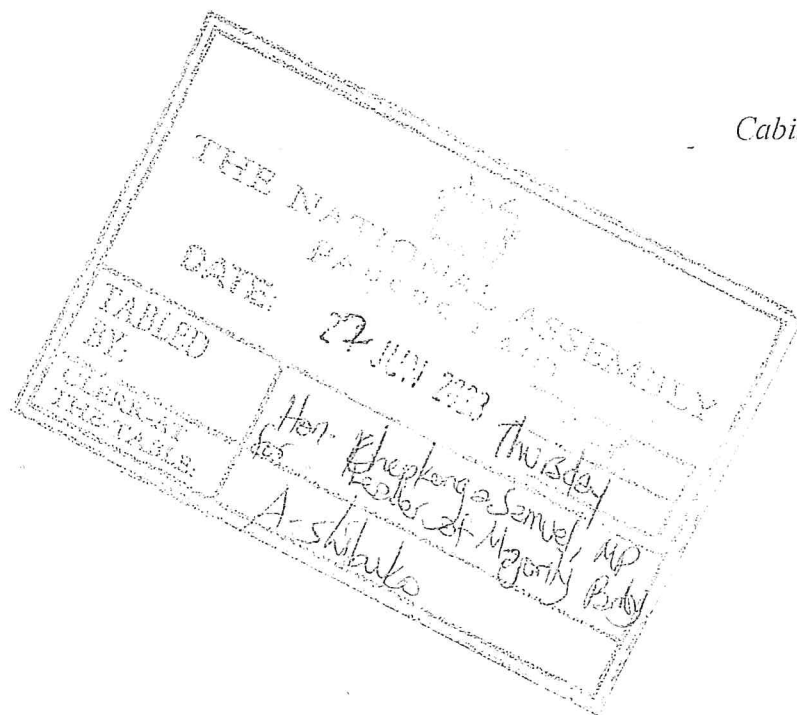 Cabi
THE NATIONAL ASSEMBLY
PAPERS LAID
DATE: JUN 2023 Thursday
TABLED BY: Hon. Samuel, MP
for Leader of Majority Party
CLERK-AT THE-TABLE: A. Shibuko